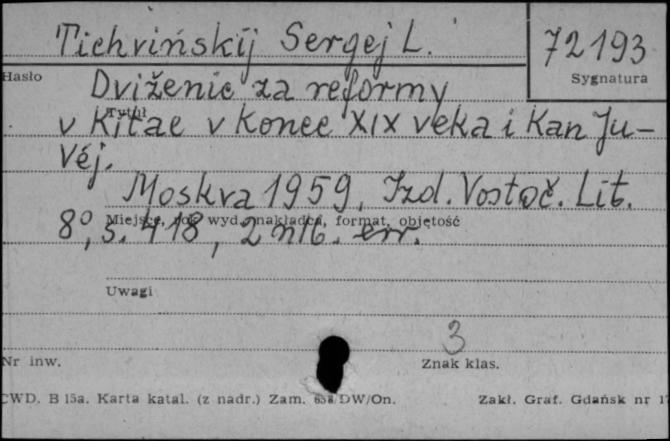 Tichvińskij Sergej L.
72193
Hasło
Sygnatura
Dviženie za reformy
Tytuł
v Kitae v Konce XIX veka i Kan Ju-
Véj.
Moskva 1959, Izd. Vostoč. Lit.
Miejsce, rok wyd. nakładca, format, objętość
8º, s. 418, 2 nlb. err.
Uwagi
3
Nr inw.
Znak klas.
CWD. B 15a. Karta katal. (z nadr.) Zam. DW/On.
Zakł. Graf. Gdańsk nr